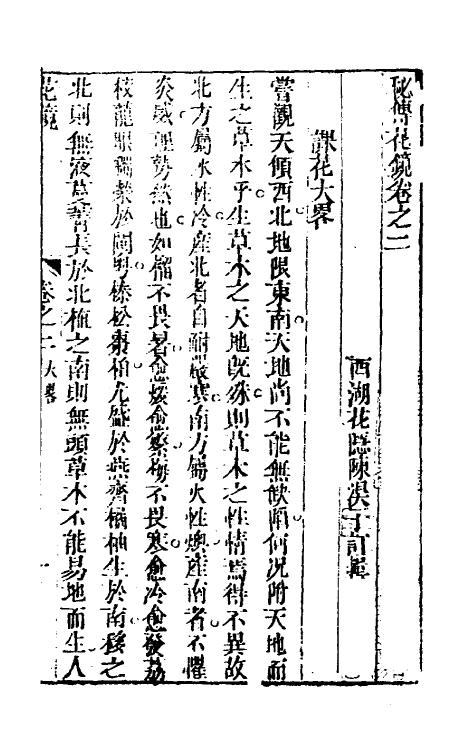 秘傳花鏡卷之二
西湖花隱陳淏子訂輯
課花大畧
嘗觀天傾西北地限東南天地尚不能無缺陷何況附天地而
生之草木乎生草木之天地旣殊則草木之性情焉得不異故
北方屬水性冷產北者自耐嚴寒南方屬火性燠產南者不懼
炎威理勢然也如榴不畏暑愈煖愈繁梅不畏寒愈冷愈發荔
枝龍眼獨榮於閩粤榛松棗柏尤盛於燕齊橘柚生於南移之
北則無液蔓菁長於北植之南則無頭草木不能易地而生人
花鏡
卷之二
大畧